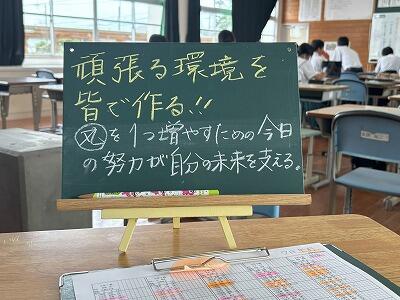 頑張る環境を
皆で作る!!
を1つ増やすための今日
の努力が自分の未来を支える。